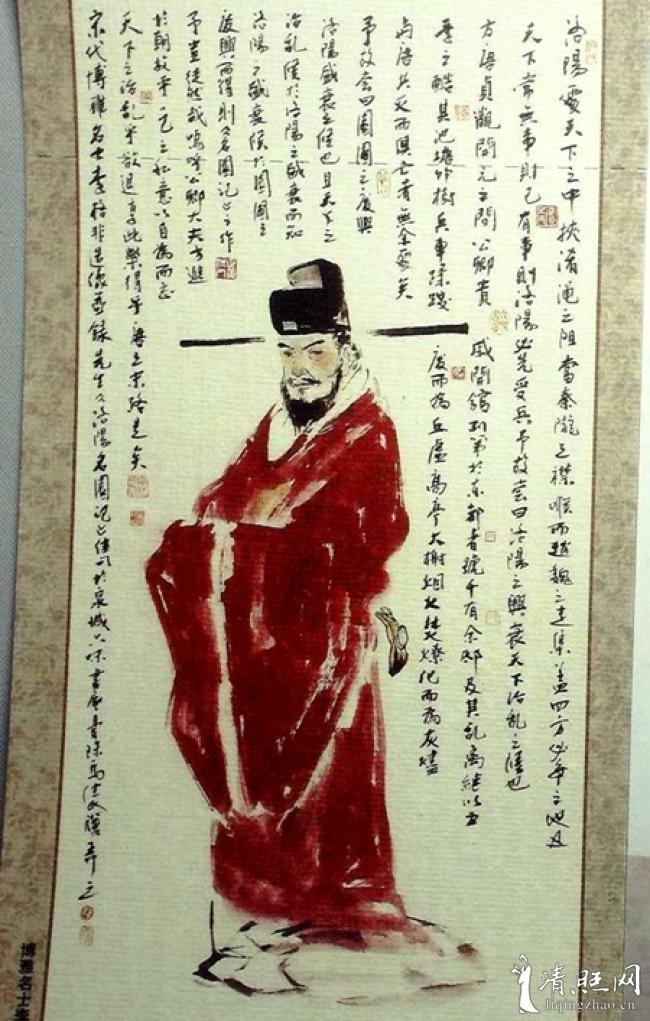 洛陽處天下之中挾淆黽之阻當秦隴之襟喉而趙魏之走集蓋四方必爭之地也
天下常無事則已有事則洛陽必先受兵予故嘗曰洛陽之興衰天下治亂之候也
方唐貞觀開元之間公卿貴戚開館列第於東都者號千有余邸及其亂離繼以五
季之酷其池塘竹樹兵車蹂踐廢而為丘虛高亭大榭烟火焚燎化而為灰燼
與唐共滅而俱亡者無余處矣
予故嘗曰園圃之廢興
洛陽盛衰之候也且天下之
治亂候於洛陽之盛衰而知
洛陽之盛衰候於園圃之
廢興而得則名園記之作
予豈徒然哉嗚呼公卿大夫方進
於朝放乎一己之私意以自為而忘
天下之治亂乎欲退享此樂得乎唐之末路是矣
宋代博雅名士李格非造像並錄先生之洛陽名園記 於泉城
博雅名士李
清照网
liqingzhao.cn